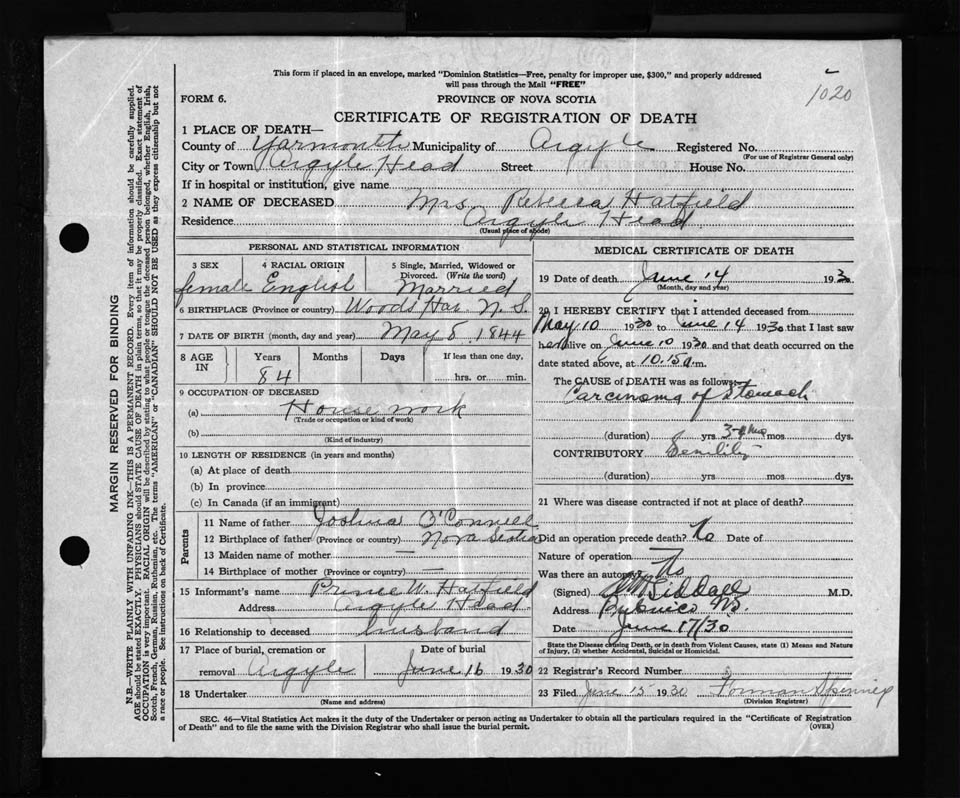 This form if placed in an envelope, marked "Dominion Statistics—Free, penalty for improper use, $300," and properly addressed
will pass through the Mail "FREE"
1020
FORM 6. PROVINCE OF NOVA SCOTIA
CERTIFICATE OF REGISTRATION OF DEATH
1 PLACE OF DEATH—
County of Yarmouth Municipality of Argyle Registered No.
(For use of Registrar General only)
City or Town Argyle Head Street House No.
If in hospital or institution, give name
2 NAME OF DECEASED Mrs. Rebecca Hatfield
Residence Argyle Head
(Usual place of abode)
PERSONAL AND STATISTICAL INFORMATION
3 SEX 4 RACIAL ORIGIN 5 Single, Married, Widowed or
Divorced. (Write the word)
female English Married
6 BIRTHPLACE (Province or country) Woods Har. N. S.
7 DATE OF BIRTH (month, day and year) May 8, 1844
8 AGE IN Years Months Days If less than one day,
84 hrs. or min.
9 OCCUPATION OF DECEASED
(a) House work
(Trade or occupation or kind of work)
(b)
(Kind of industry)
10 LENGTH OF RESIDENCE (in years and months)
(a) At place of death
(b) In province
(c) In Canada (if an immigrant)
Parents
11 Name of father Joshua O'Connell
12 Birthplace of father (Province or country) Nova Scotia
13 Maiden name of mother —
14 Birthplace of mother (Province or country) —
15 Informant's name Prince W. Hatfield
Address Argyle Head
16 Relationship to deceased husband
17 Place of burial, cremation or Date of burial
removal Argyle June 16 1930
18 Undertaker
(Name and address)
MEDICAL CERTIFICATE OF DEATH
19 Date of death June 14 1930
(Month, day and year)
20 I HEREBY CERTIFY that I attended deceased from
May 10 1930 to June 14 1930 that I last saw
her alive on June 10 1930 and that death occurred on the
date stated above, at 10.15 a.m.
The CAUSE of DEATH was as follows:
Carcinoma of Stomach
(duration) yrs mos dys.
CONTRIBUTORY Senility
(duration) yrs mos dys.
21 Where was disease contracted if not at place of death?
Did an operation precede death? No Date of
Nature of operation —
Was there an autopsy? No
(Signed) Siddall M.D.
Address Pubnico NS.
Date June 17/30
State the Disease causing Death, or in death from Violent Causes, state (1) Means and Nature
of Injury, (2) whether Accidental, Suicidal or Homicidal.
22 Registrar's Record Number
23 Filed June 15 1930 Forman Spinney
(Division Registrar)
SEC. 46—Vital Statistics Act makes it the duty of the Undertaker or person acting as Undertaker to obtain all the particulars required in the "Certificate of Registration
of Death" and to file the same with the Division Registrar who shall issue the burial permit. (OVER)
MARGIN RESERVED FOR BINDING
N.B.—WRITE PLAINLY WITH UNFADING INK—THIS IS A PERMANENT RECORD. Every item of information should be carefully supplied.
AGE should be stated EXACTLY. PHYSICIANS should STATE CAUSE OF DEATH in plain terms, so that it may be properly classified. Exact statement of
OCCUPATION is very important. RACIAL ORIGIN will be described by stating to what people or tongue the deceased person belonged, whether English, Irish,
Scotch, French, German, Russian, Ruthenian, etc. The terms "AMERICAN" or "CANADIAN" SHOULD NOT BE USED as they express citizenship but not
a race or people. See instructions on back of Certificate.